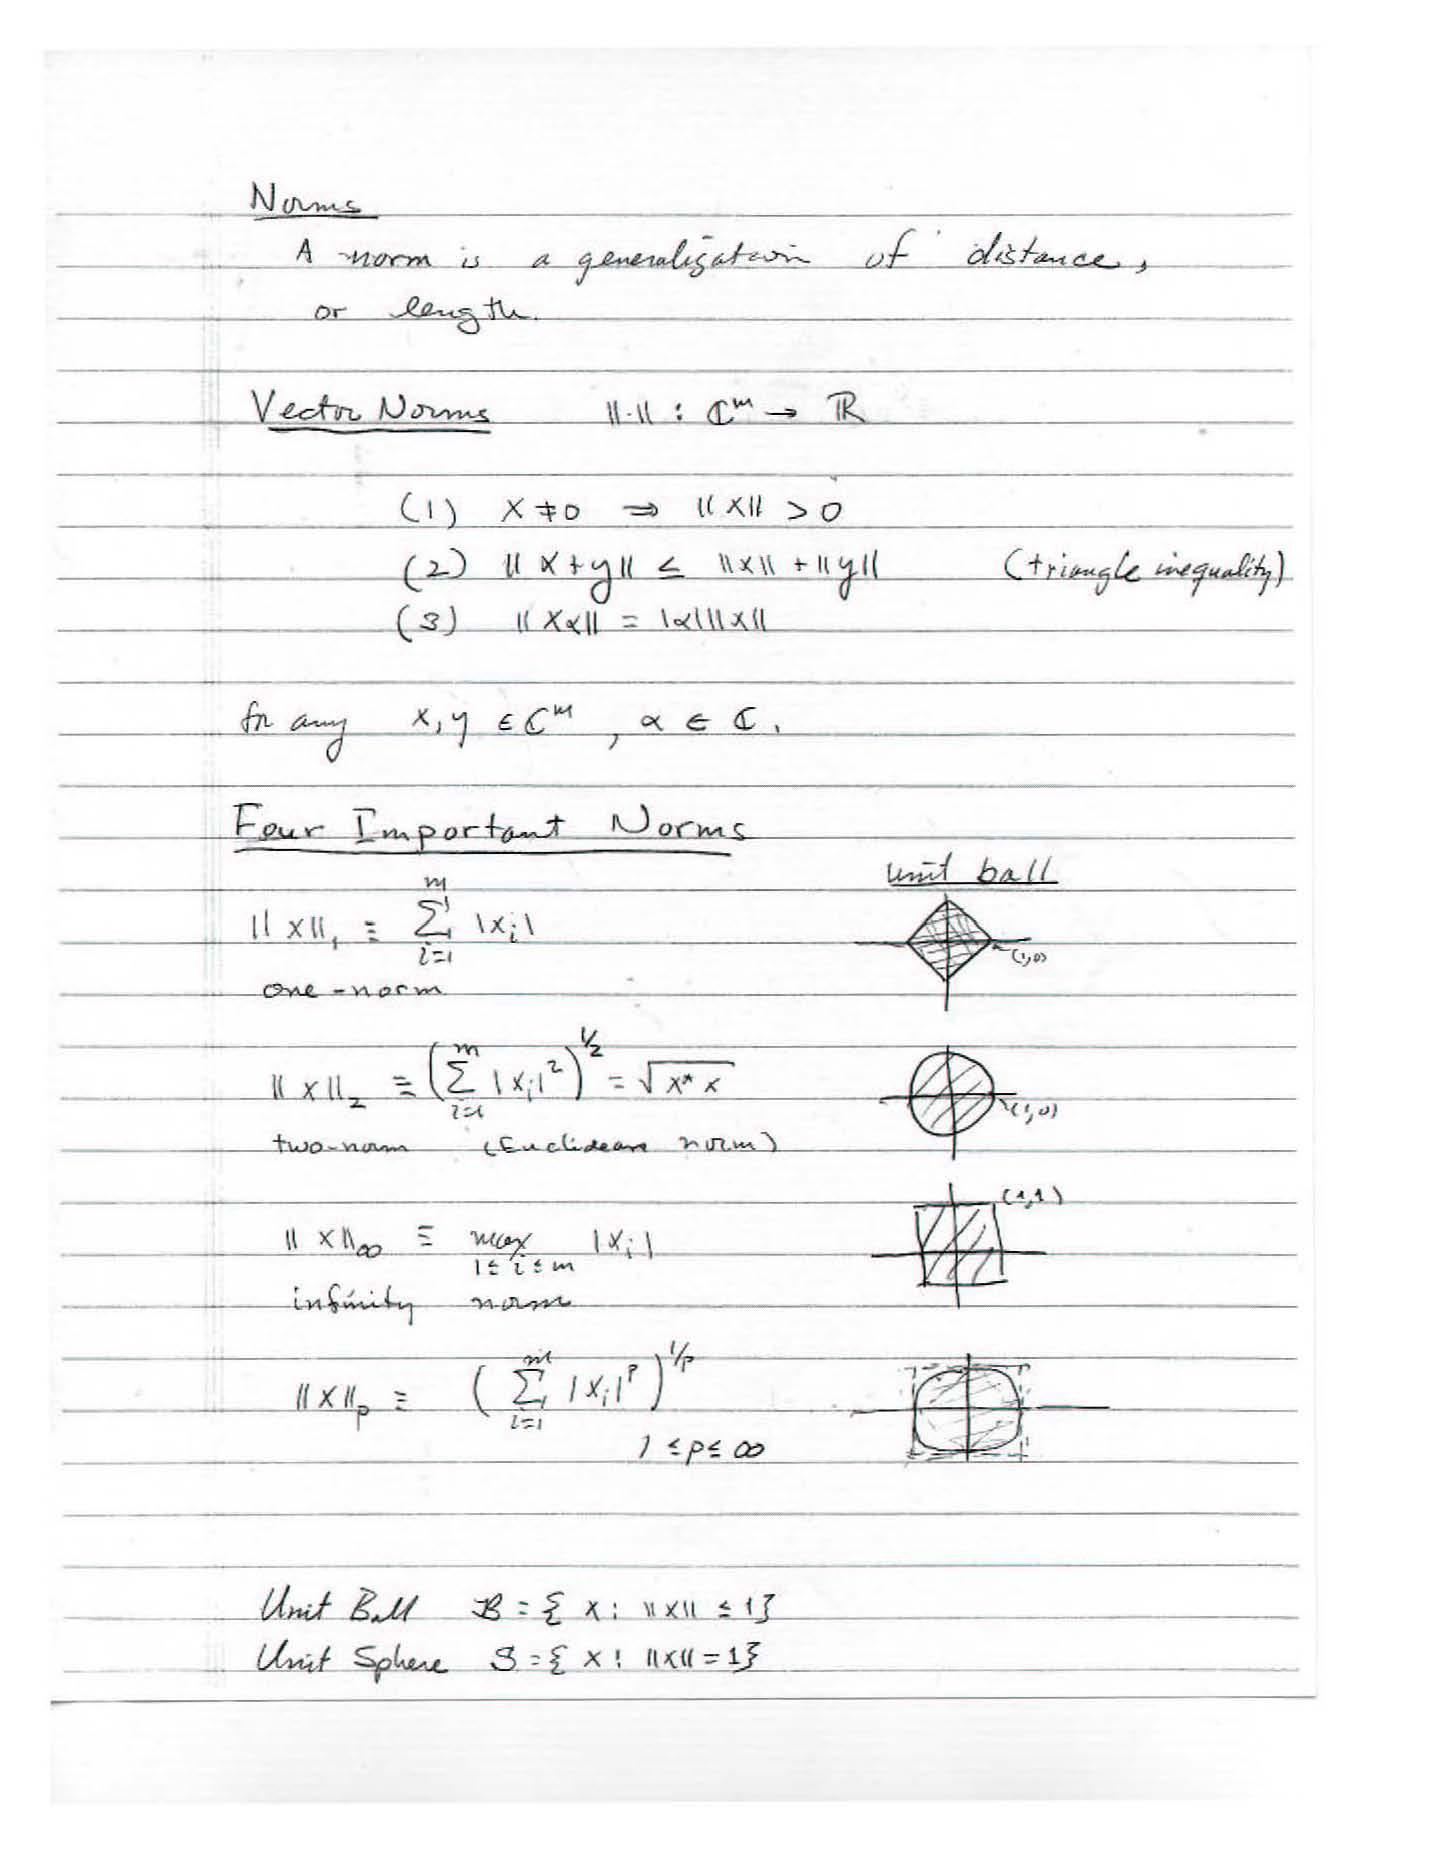 Norms
A norm is a generalization of distance,
or length.
Vector Norms ||·|| : ℂᵐ → ℝ
(1) x ≠ 0 ⇒ ||x|| > 0
(2) ||x+y|| ≤ ||x|| + ||y|| (triangle inequality)
(3) ||xα|| = |α| ||x||
for any x, y ∈ ℂᵐ, α ∈ ℂ.
Four Important Norms
unit ball
||x||₁ ≡ ∑_{i=1}^{m} |xᵢ|
(1,0)
one-norm
||x||₂ ≡ (∑_{i=1}^{m} |xᵢ|²)^{1/2} = √(x* x)
(1,0)
two-norm (Euclidean norm)
(1,1)
||x||_∞ ≡ max_{1≤i≤m} |xᵢ|
infinity norm
||x||_p ≡ (∑_{i=1}^{m} |xᵢ|^p)^{1/p}
1 ≤ p ≤ ∞
Unit Ball B = { x : ||x|| ≤ 1}
Unit Sphere S = { x : ||x|| = 1}